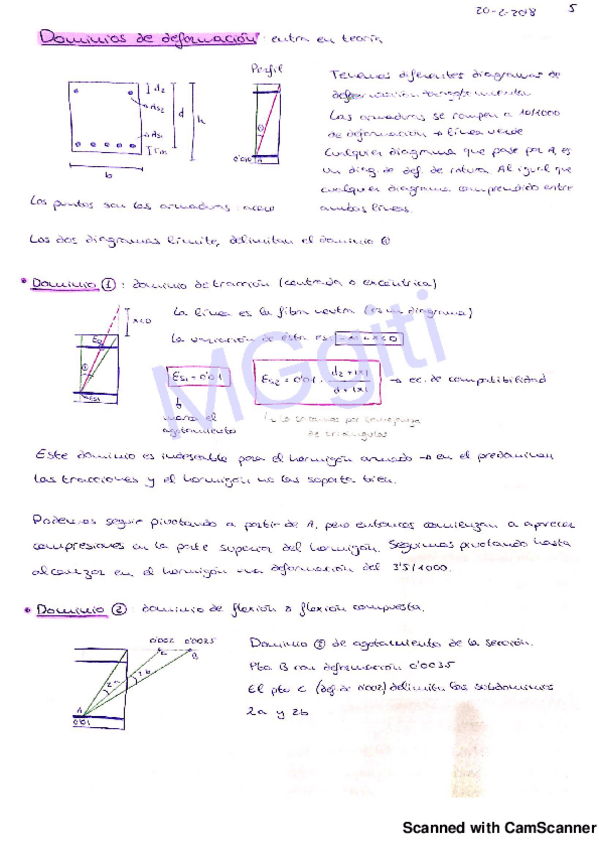 20-2-2018 5
Dominios de deformación: entra en teoría
Perfil
d2
As2
As1
d
h
b
0'010 A
Tenemos diferentes diagramas de
deformación
Las armaduras se rompen a 10/1000
de deformación → línea verde
Cualquier diagrama que pase por A, es
un diag de def. de rotura. Al igual que
cualquier diagrama comprendido entre
ambas líneas.
Los puntos son las armaduras: acero
Los dos diagramas límite, delimitan el dominio ①
• Dominio ①: dominio de tracción (centrada o excéntrica)
x<0
La línea es la fibra neutra (es un diagrama)
La variación de ésta es: -∞<x<0
Es1 = 0'01
Es2 = 0'01 · d2+|x| / d+|x| → ec. de compatibilidad
marca el
agotamiento
Lo sacamos por semejanza
de triángulos
Este dominio es indeseable para el hormigón armado → en él predominan
las tracciones y el hormigón no las soporta bien.
Podemos seguir pivotando a partir de A, pero entonces comienzan a aparecer
compresiones en la parte superior del hormigón. Seguimos pivotando hasta
alcanzar en el hormigón una deformación del 3'5/1000.
• Dominio ②: dominio de flexión o flexión compuesta.
0'002 0'0035
C B
2a 2b
A
0'01
Dominio ② de agotamiento de la sección.
Pto B con deformación 0'0035
El pto C (def. de 0'002) delimita los subdominios
2a y 2b
MGgiti
Scanned with CamScanner